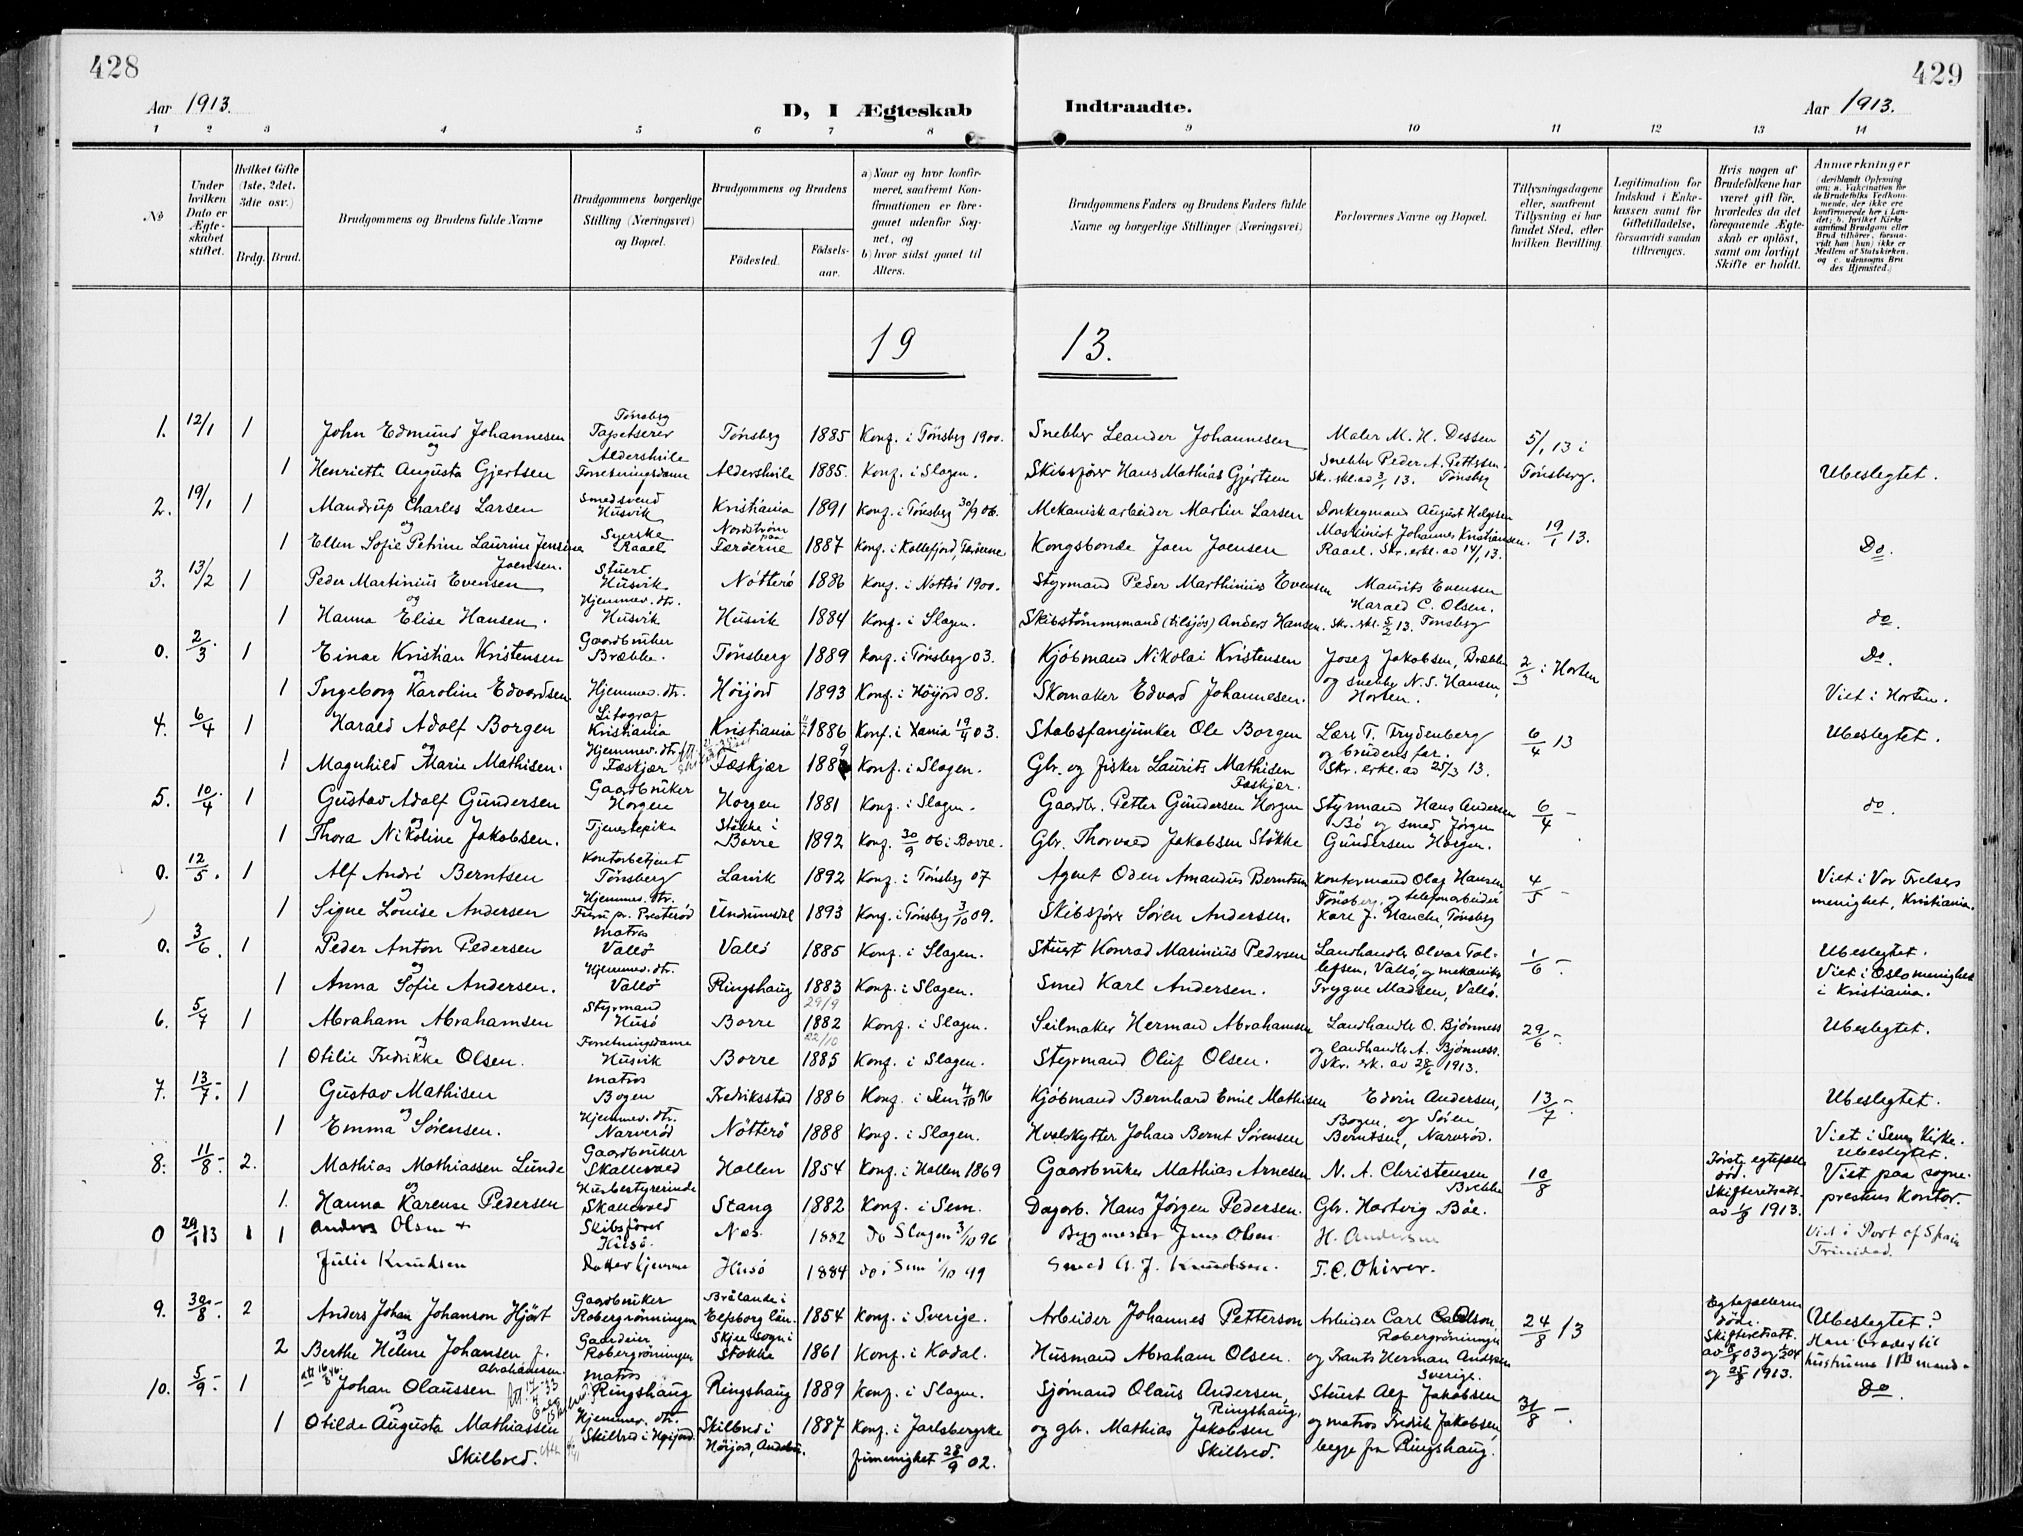 428
429
Aar 1913.
D, I Ægteskab Indtraadte.
Aar 1913.
1 2 3 4 5 6 7 8 9 10 11 12 13 14
No
Under hvilken Dato er Ægteskabet stiftet.
Hvilket Gifte (1ste, 2det, 3die osv.)
Brdg. Brud.
Brudgommens og Brudens fulde Navne
Brudgommens borgerlige Stilling (Næringsvei) og Bopæl.
Brudgommens og Brudens
Fødested. Fødselsaar.
a) Naar og hvor konfirmeret, saafremt Konfirmationen er foregaaet udenfor Sognet, og
b) hvor sidst gaaet til Alters.
Brudgommens Faders og Brudens Faders fulde Navne og borgerlige Stillinger (Næringsvei)
Forlovernes Navne og Bopæl.
Tillysningsdagene eller, saafremt Tillysning ei har fundet Sted, efter hvilken Bevilling
Legitimation for Indskud i Enkekassen samt for Giftetilladelse, forsaavidt saadan tiltrænges.
Hvis nogen af Brudefolkene har været gift før, hvorledes da det foregaaende Ægteskab er opløst, samt om lovligt Skifte er holdt.
Anmærkninger
(deriblandt Oplysning om: a. Vakcination for de Brudefolks Vedkommende, der ikke ere konfirmerede her i Landet; b. hvilket Kirkesamfund Brudgom eller Brud tilhører, forsaavidt han (hun) ikke er Medlem af Statskirken, og c. udensogns Brudes Hjemsted.)
19 13.
1. 12/1 1 John Edmund Johannesen Tønsberg Tapetserer Tønsberg 1885 Konf. i Tønsberg 1900. Snekker Leander Johannesen Maler M. H. Dessen 5/1 13 i
og
1 Henriette Augusta Gjertsen Aldershvile Forretningsdame Aldershvile 1885. Konf. i Slagen. Skibsfører Hans Mathias Gjertsen Snekker Peder A. Pettersen Skr. erkl. ad 3/1 13. Tønsberg Tønsberg. Ubeslegtet.
2. 19/1 1 Mandrup Charles Larsen Smedsvend Husvik Kristiania 1891 Konf. i Tønsberg 30/9 06. Mekanisk arbeider Martin Larsen Donkeymand August Helgesen
og
1 Ellen Sofie Petrine Laurine Jensine Joensen. Syerske Raael Nordstrøm paa Færøerne 1887 Konf. i Kollefjord, Færøerne Kongsbonde Joen Joensen Maskinist Johannes Kristiansen. Raael. Skr. erkl. ad 14/1 13. 19/1 13. Do.
3. 13/2 1 Peder Martinius Evensen Stuert Husvik Nøtterø 1886 Konf. i Nøtterø 1900. Styrmand Peder Marthinius Evensen Maurits Evensen
og
1 Hanna Elise Hansen. Hjemmev. dtr. Husvik Husvik 1884 Konf. i Slagen. Skibstømmermand (tilsjøs) Anders Hansen. Harald C. Olsen. Skr. erkl. 5/2 13. Tønsberg do.
0. 2/3 1 Einar Kristian Kristensen Gaardbruker Brække. Tønsberg 1889 Konf. i Tønsberg 03. Kjøbmand Nikolai Kristensen Josef Jakobsen, Brække 2/3 i Horten Do.
og
1 Ingeborg Karoline Edvardsen Hjemmev. dtr. Høijord 1893 Konf. i Høijord 08. Skomaker Edvard Johannesen. og snekker N. S. Hansen, Horten. Viet i Horten.
4. 6/4 1 Harald Adolf Borgen Litograf Kristiania Kristiania 1886 Konf. i Xania 19/4 03. Stabsfanejunker Ole Borgen Lærer T. Trydenberg 6/4 13 Ubeslegtet.
og
1 Magnhild Marie Mathisen. Hjemmev. dtr. Fæskjær Fæskjær 1889 Konf. i Slagen. Gbr. og fisker Laurits Mathisen Fæskjær. og brudens far. Skr. erkl. ad 25/3 13.
5. 10/4 1 Gustav Adolf Gundersen Gaardbruker Horgen Horgen 1881 Konf. i Slagen. Gaardbr. Petter Gundersen Horgen Styrmand Hans Andersen 6/4 – do.
og
1 Thora Nikoline Jakobsen. Tjenestepike Støkke i Borre 1892 Konf. 30/9 06 i Borre. Gbr. Thorvald Jakobsen Støkke Bø og smed Jørgen Gundersen Horgen.
0. 12/5. 1 Alf André Berntsen Kontorbetjent Tønsberg Larvik 1892 Konf. i Tønsberg 07 Agent Oden Amandus Berntsen Kontormand Olaf Hansen 4/5 – Viet i Vor Frelsers
og
1 Signe Louise Andersen Hjemmev. dtr. Furu pr. Presterød Undrumsdal 1893 Konf. i Tønsberg 3/10 09. Skibsfører Søren Andersen. Tønsberg, og telefonarbeider Kare J. Hancke, Tønsberg menighet, Kristiania.
0. 3/6. 1 Peder Anton Pedersen Matros Vallø Vallø 1885 Konf. i Slagen. Stuert Konrad Marinius Pedersen Landhandler Olvar Tollefsen, Vallø, og mekaniker 1/6 –. Ubeslegtet.
og
1 Anna Sofie Andersen. Hjemmev. dtr. Vallø Ringshaug 1883 Konf. i Slagen. Smed Karl Andersen. Trygve Madsen, Vallø. Viet i Oslo menighet i Kristiania.
6. 5/7 1 Abraham Abrahamsen Styrmand Husø Borre 29/9 1882 Konf. i Slagen. Seilmaker Herman Abrahamsen Landhandler O. Bjønness 29/6 – Ubeslegtet.
og
1 Otilie Fredrikke Olsen. Forretningsdame Husvik Borre 22/10 1885 Konf. i Slagen. Styrmand Oluf Olsen. og landhandler A. Bjønness. Skr. erk. av 28/6 1913.
7. 13/7 – 1 Gustav Mathisen Matros Bogen Fredriksstad 1886 Konf. i Sem 4/10 96 Kjøbmand Bernhard Emil Mathisen Edvin Andersen, 13/7 –. Ubeslegtet.
og
1 Emma Sørensen. Hjemmev. dtr. Narverød Nøtterø 1888 Konf. i Slagen. Hvalskytter Johan Bernt Sørensen Bogen, og Søren Berntsen, Narverød. Viet i Sems Kirke.
8. 11/8 –. 2. Mathias Mathiassen Lunde Gaardbruker Skallevold Hallen 1854 Konf. i Hallen 1869 Gaardbruker Mathias Arnesen N. A. Christensen Brekke 10/8 Første egtefælle død. Ubeslegtet.
og
1. Hanna Karense Pedersen Husbestyrerinde Skallevold Stang 1882 Konf. i Sem. Dagarb. Hans Jørgen Pedersen. Gbr. Hartvig Bøe. Skifteretsatt. av 1/8 1913. Viet paa sogneprestens Kontor.
0 29/1 13 1 1 Anders Olsen + Skibsfører Husø. Nes. 1882 Do Slagen 3/10 96 Byggmester Jens Olsen. H. Andersen Viet i Port of Spain Trinidad.
Julie Knudsen Datter hjemme Husø 1884 do i Sem 1/10 99 Smed A. J. Knudsen. T. C. Ohiver.
9. 30/8 – 2 Anders Johan Johanson Hjört Gaardbruker Robergrønningen Brålanda i Elfsborg län 1854 Konf. i Sverige. Arbeider Johannes Petterson Arbeider Carl Carlson, Robergrøningen 24/8 13 Egtefællerne døde. (Ubeslegtet?
og
2 Berthe Helene Johansen f. Abrahamsen. Gaardeier Robergrøningen Skjee sogn i Stokke 1861 Konf. i Kodal. Husmand Abraham Olsen. og Frants Herman Andersen Sverige. Skifteretsatt. av 8/8 03 og og 25/8 1913. Han broder til hustruens mand.
10. 5/9 – 1 Johan Olaussen Matros Ringshaug Ringshaug 1889 Konf. i Slagen. Sjømand Olaus Andersen, Ringshaug, Stuert Alf Jakobsen 31/8 –. Do.
og
1 Otilde Augusta Mathiassen Skilbred. Hjemmev. dtr. Skilbred i Høijord. Skilbred i Høijord, Andebu. 1887 Konf. i Jarlsbergske frimenighet 28/9 02. og gbr. Mathias Jakobsen Skilbred. og matros Fredrik Jakobsen begge fra Ringshaug.